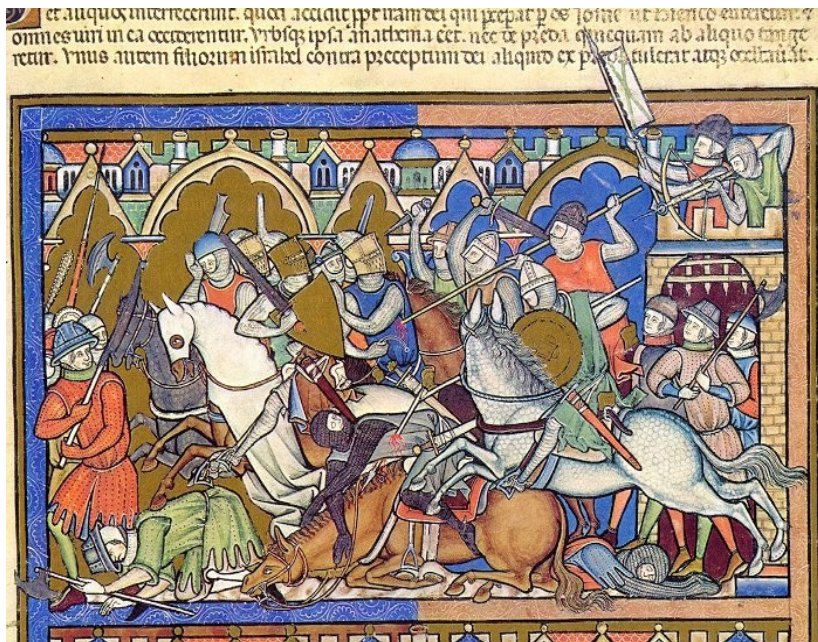 et aliquos interfecerunt. quod accidit ppt iram dei qui precepat p os iosue ut Ierico euerteretur. &
omnes uiri in ea occiderentur. Vrbsq; ipsa anathema eet. nec de preda quicquam ab aliquo tange
retur. Vnus autem filiorum israhel contra preceptum dei aliquid ex tulerat atq;